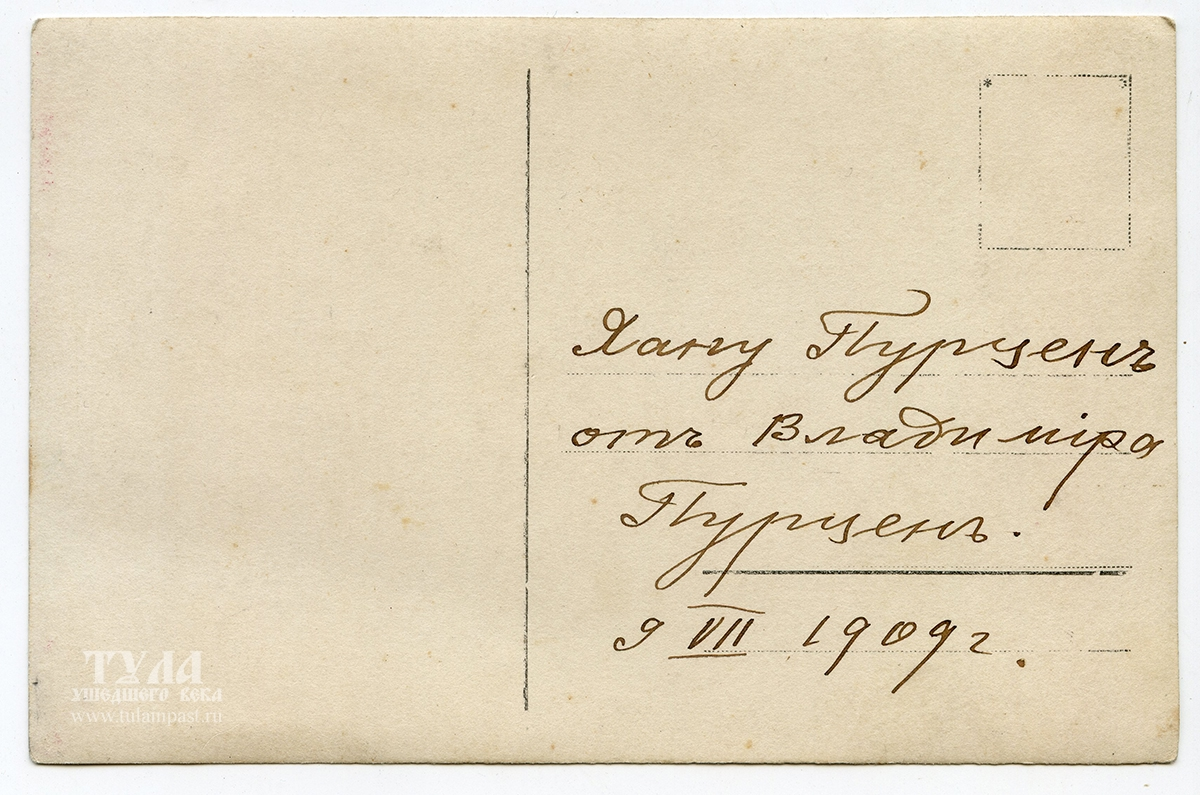 Хану Пурценъ
отъ Владиміра
Пурценъ.
9 VII 1909 г.
ТУЛА
УШЕДШЕГО ВЕКА
www.tulainpast.ru